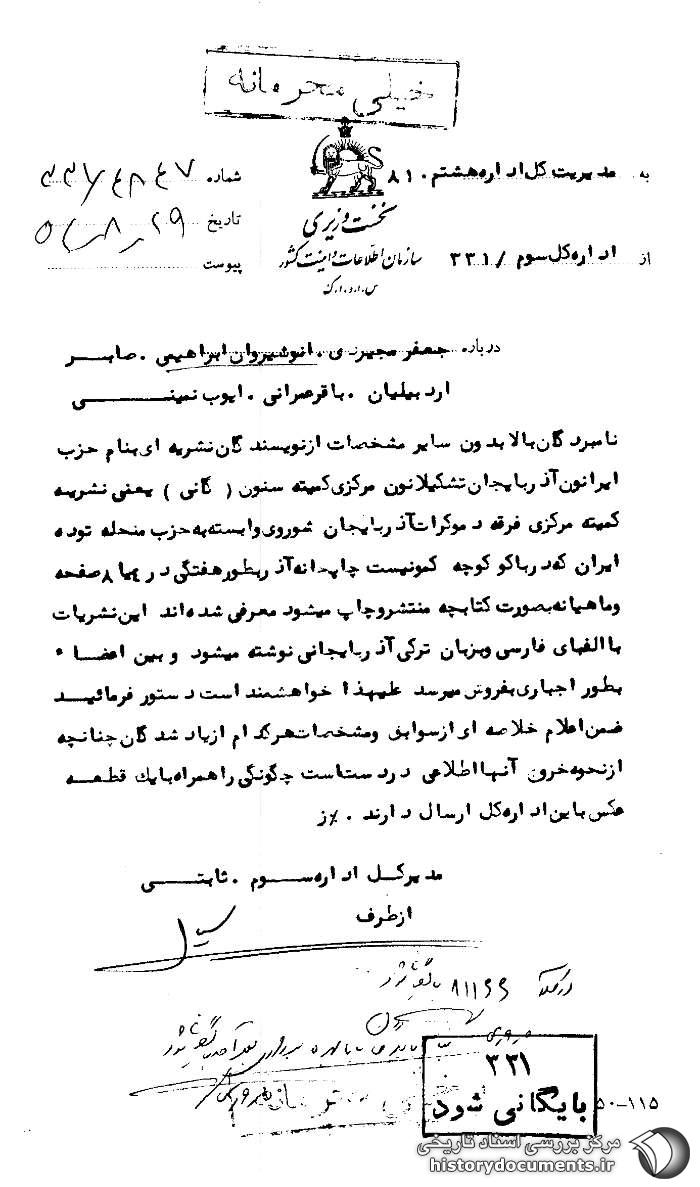 خیلی محرمانه
به مدیریت کل اداره هشتم ۸۱۰
شماره
نخست وزیری
تاریخ
سازمان اطلاعات و امنیت کشور
از اداره کل سوم / ۳۳۱
پیوست
س.ا.و.ا.ک
درباره جعفر مجیری . انوشیروان ابراهیمی . صابر
اردبیلیان . باقر عمرانی . ایوب نمینی
نامبردگان بالا بدون سایر مشخصات از نویسندگان نشریه ای بنام حزب
ایرانون آذربایجان تشکیلاتون مرکزی کمیته سنون ( گانی ) یعنی نشریه
کمیته مرکزی فرقه دموکرات آذربایجان شوروی وابسته به حزب منحله توده
ایران که در باکو کوچه کمونیست چاپخانه آذر بطور هفتگی در ۴ یا ۸ صفحه
و ماهیانه بصورت کتابچه منتشر و چاپ میشود معرفی شده اند این نشریات
با الفبای فارسی و بزبان ترکی آذربایجانی نوشته میشود و بین اعضاء
بطور اجباری بفروش میرسد علیهذا خواهشمند است دستور فرمائید
ضمن اعلام خلاصه ای از سوابق و مشخصات هر کدام از یاد شدگان چنانچه
از نحوه خروج آنها اطلاعی در دست است چگونگی را همراه با یک قطعه
عکس باین اداره کل ارسال دارند . ٪ز
مدیرکل اداره سوم . ثابتی
از طرف
۳۳۱
بایگانی شود
۵۰-۱۱۵
مرکز بررسی اسناد تاریخی
historydocuments.ir